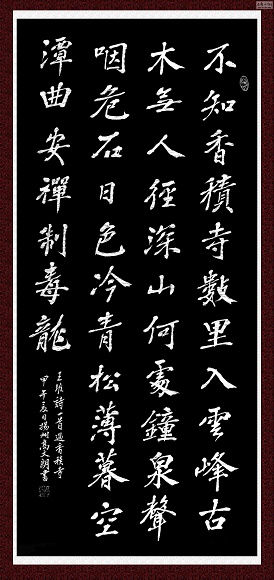 不知香積寺數里入雲峰古
木無人徑深山何處鐘泉聲
咽危石日色冷青松薄暮空
潭曲安禪制毒龍
王維詩一首過香積寺
甲午夏日揚州高文朗書